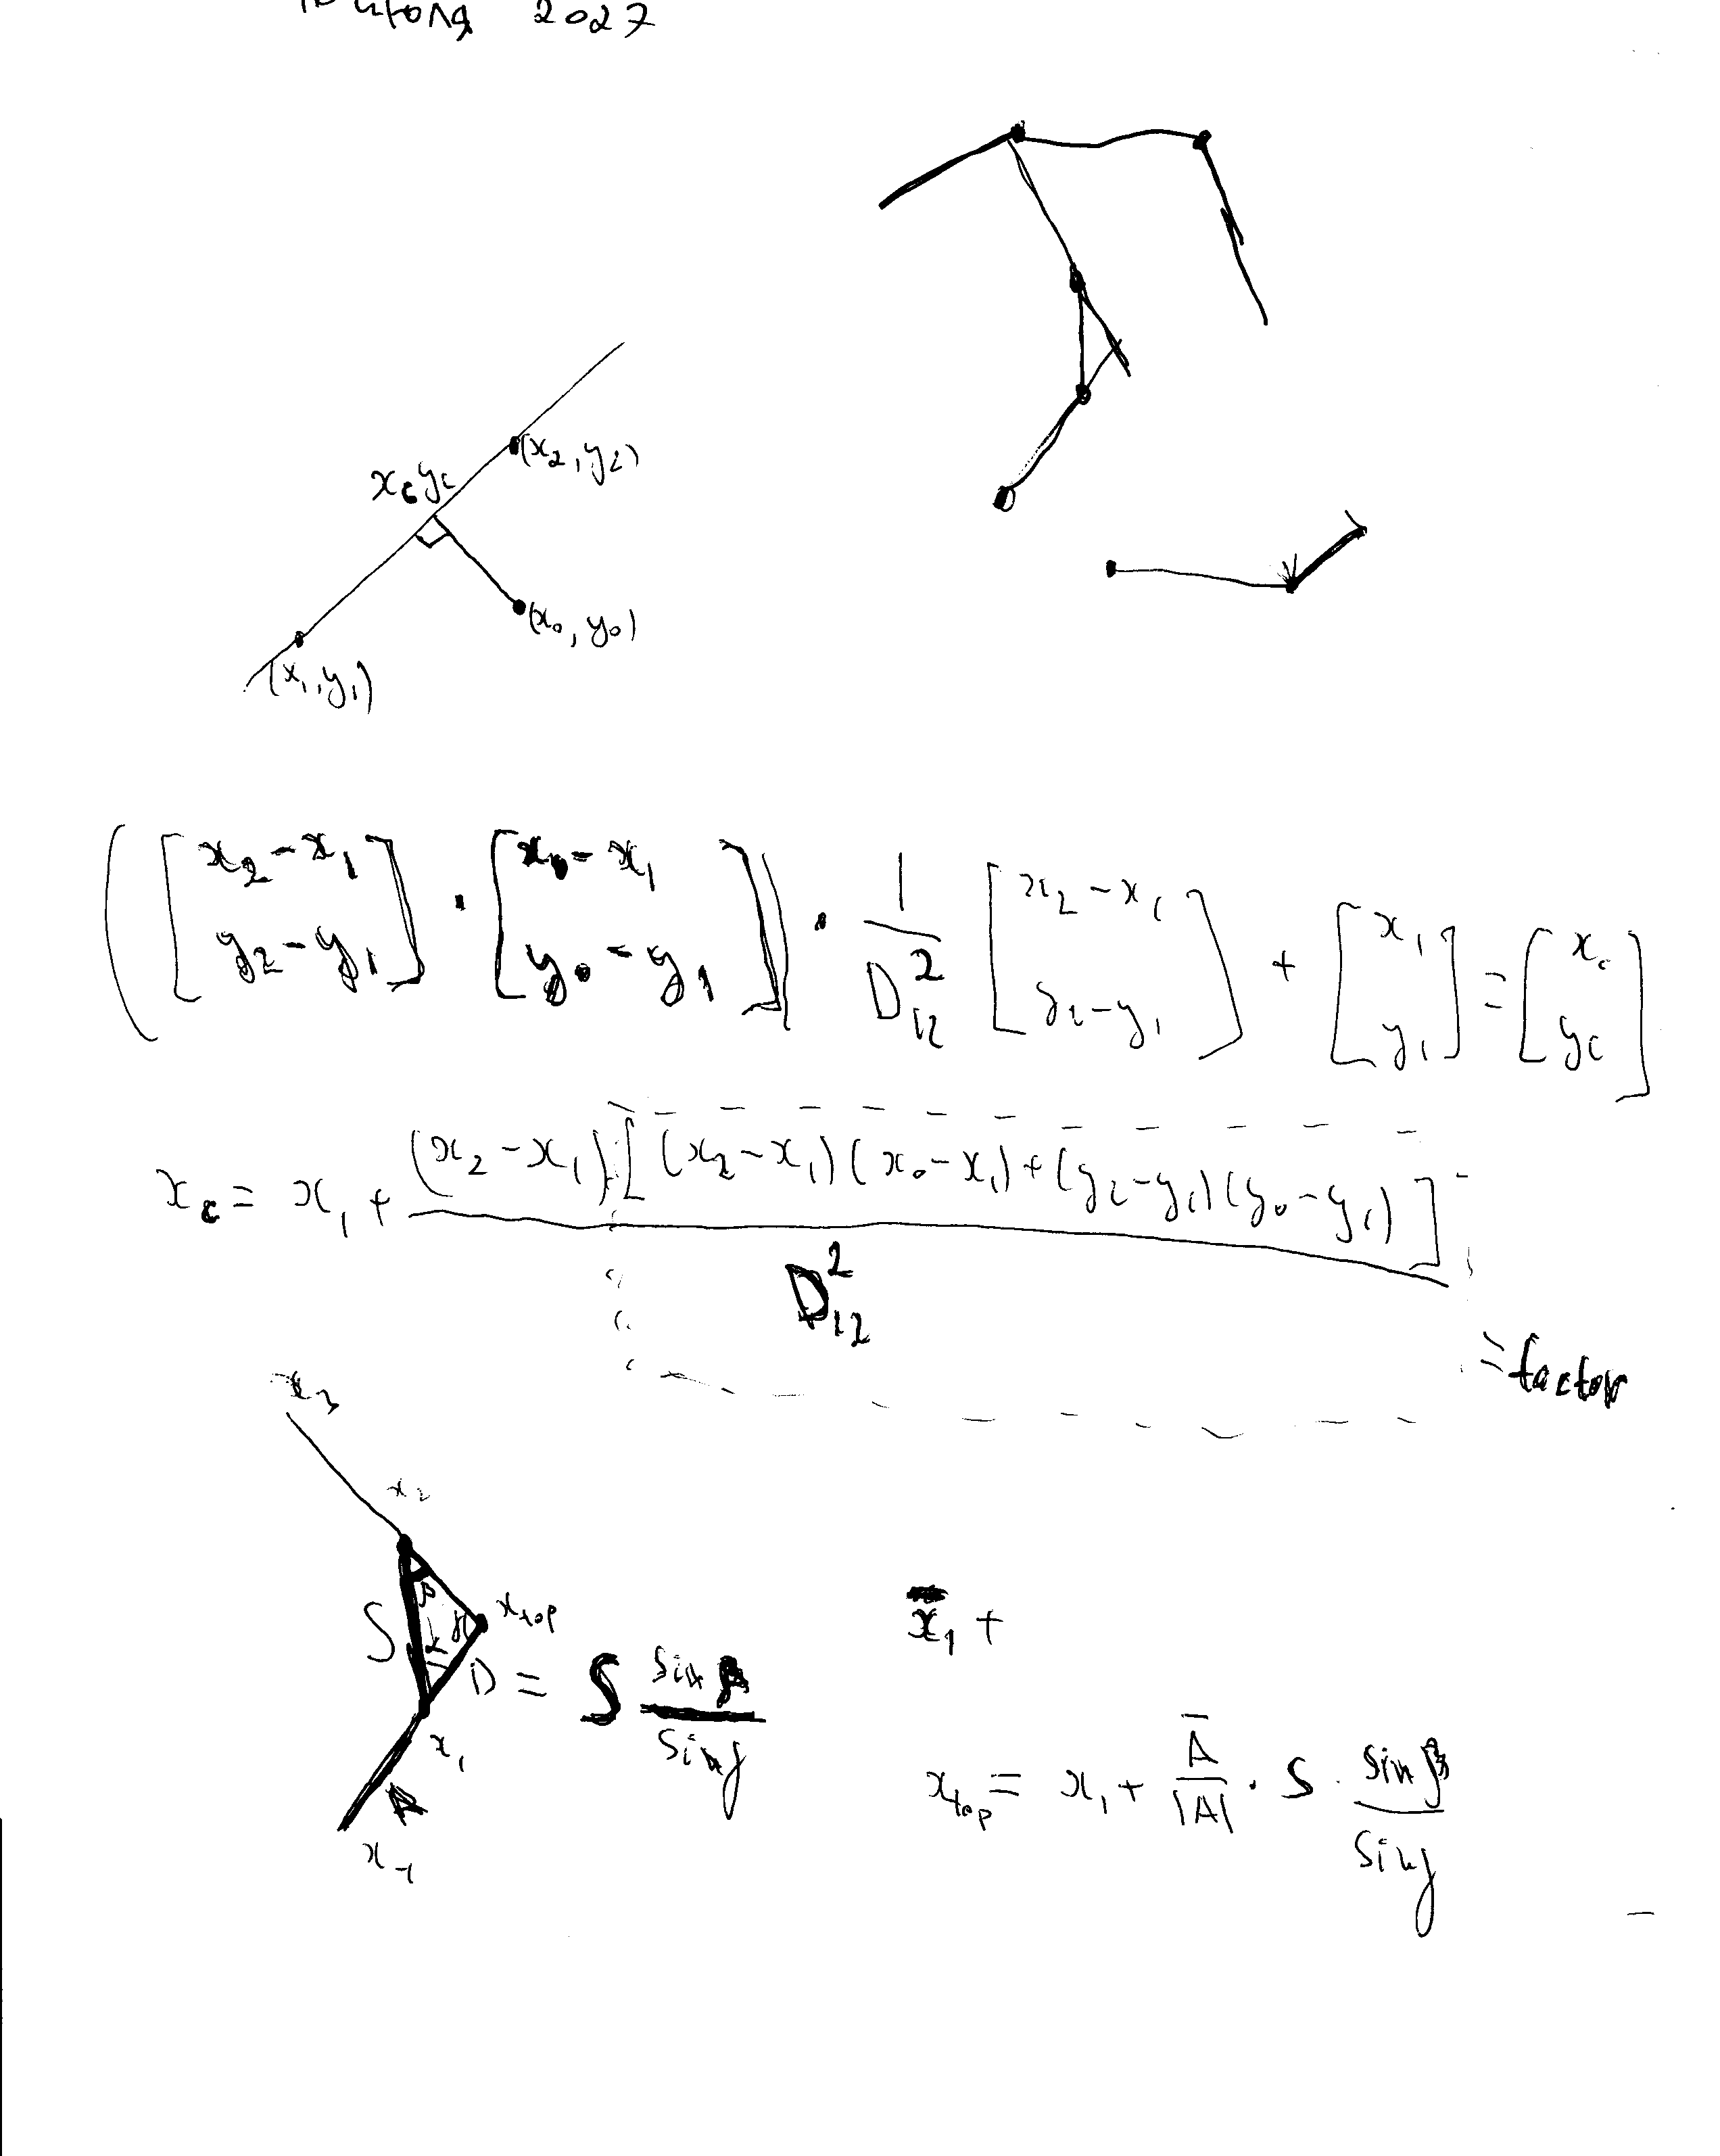 июля 2027
(x₂, y₂)
x_c y_c
(x₀, y₀)
(x₁, y₁)
( [ x₂ - x₁ ; y₂ - y₁ ] · [ x₀ - x₁ ; y₀ - y₁ ] ) · 1 / D₁₂² [ x₂ - x₁ ; y₂ - y₁ ] + [ x₁ ; y₁ ] = [ x_c ; y_c ]
x_c = x₁ + (x₂ - x₁) · [ (x₂ - x₁)(x₀ - x₁) + (y₂ - y₁)(y₀ - y₁) ] / D₁₂²
= factor
x₃
x₂
β
x_top
S
α
γ
D = S sin β / sin γ
x₁
A
x₋₁
x̄₁ +
x_top = x₁ + Ā / |A| · S · sin β / sin γ